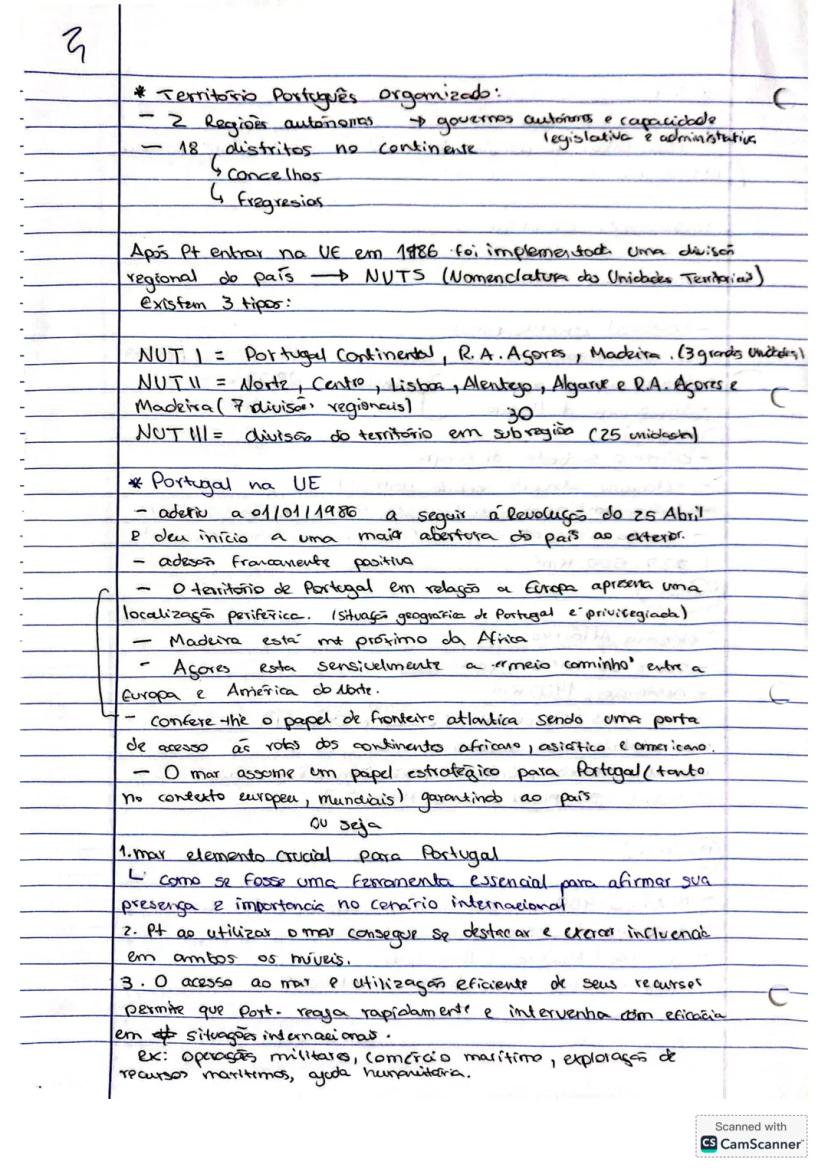 3
* Território Português organizado:
- 2 Regiões autónomas → governos autónomos e capacidade
legislativa e administrativa
- 18 distritos no continente
↳ Concelhos
↳ Fregresias
Após Pt entrar na UE em 1986 foi implementada uma divisão
regional do país → NUTS (Nomenclatura das Unidades Territoriais)
existem 3 tipos:
NUT I = Portugal Continental, R.A. Açores, Madeira. (3 grandes unidades)
NUT II = Norte, Centro, Lisboa, Alentejo, Algarve e R.A. Açores e
Madeira (7 divisões regionais)
30
NUT III = divisão do território em subregião (25 unidades)
* Portugal na UE
- aderiu a 01/01/1986 a seguir á Revolução do 25 Abril
e deu início a uma maior abertura do país ao exterior.
- adesão francamente positiva
- O território de Portugal em relação a Europa apresenta uma
localização periférica. (situação geográfica de Portugal é privilegiada)
- Madeira está mt próximo da Africa
- Açores esta sensivelmente a "meio caminho" entre a
Europa e América do Norte.
- confere-lhe o papel de fronteira atlantica sendo uma porta
de acesso ás rotas dos continentes africano, asiático e americano.
- O mar assume um papel estratégico para Portugal (tanto
no contexto europeu, mundiais) garantindo ao país
ou seja
1. mar elemento crucial para Portugal
↳ como se fosse uma ferramenta essencial para afirmar sua
presença e importancia no cenário internacional
2. Pt ao utilizar o mar consegue se destacar e exercer influencia
em ambos os níveis.
3. O acesso ao mar e utilização eficiente de seus recursos
permite que Port. reaja rapidamente e intervenha com eficácia
em situações internacionais.
ex: operações militares, comércio marítimo, exploração de
recursos marítimos, ajuda humanitária.
Scanned with
CS CamScanner